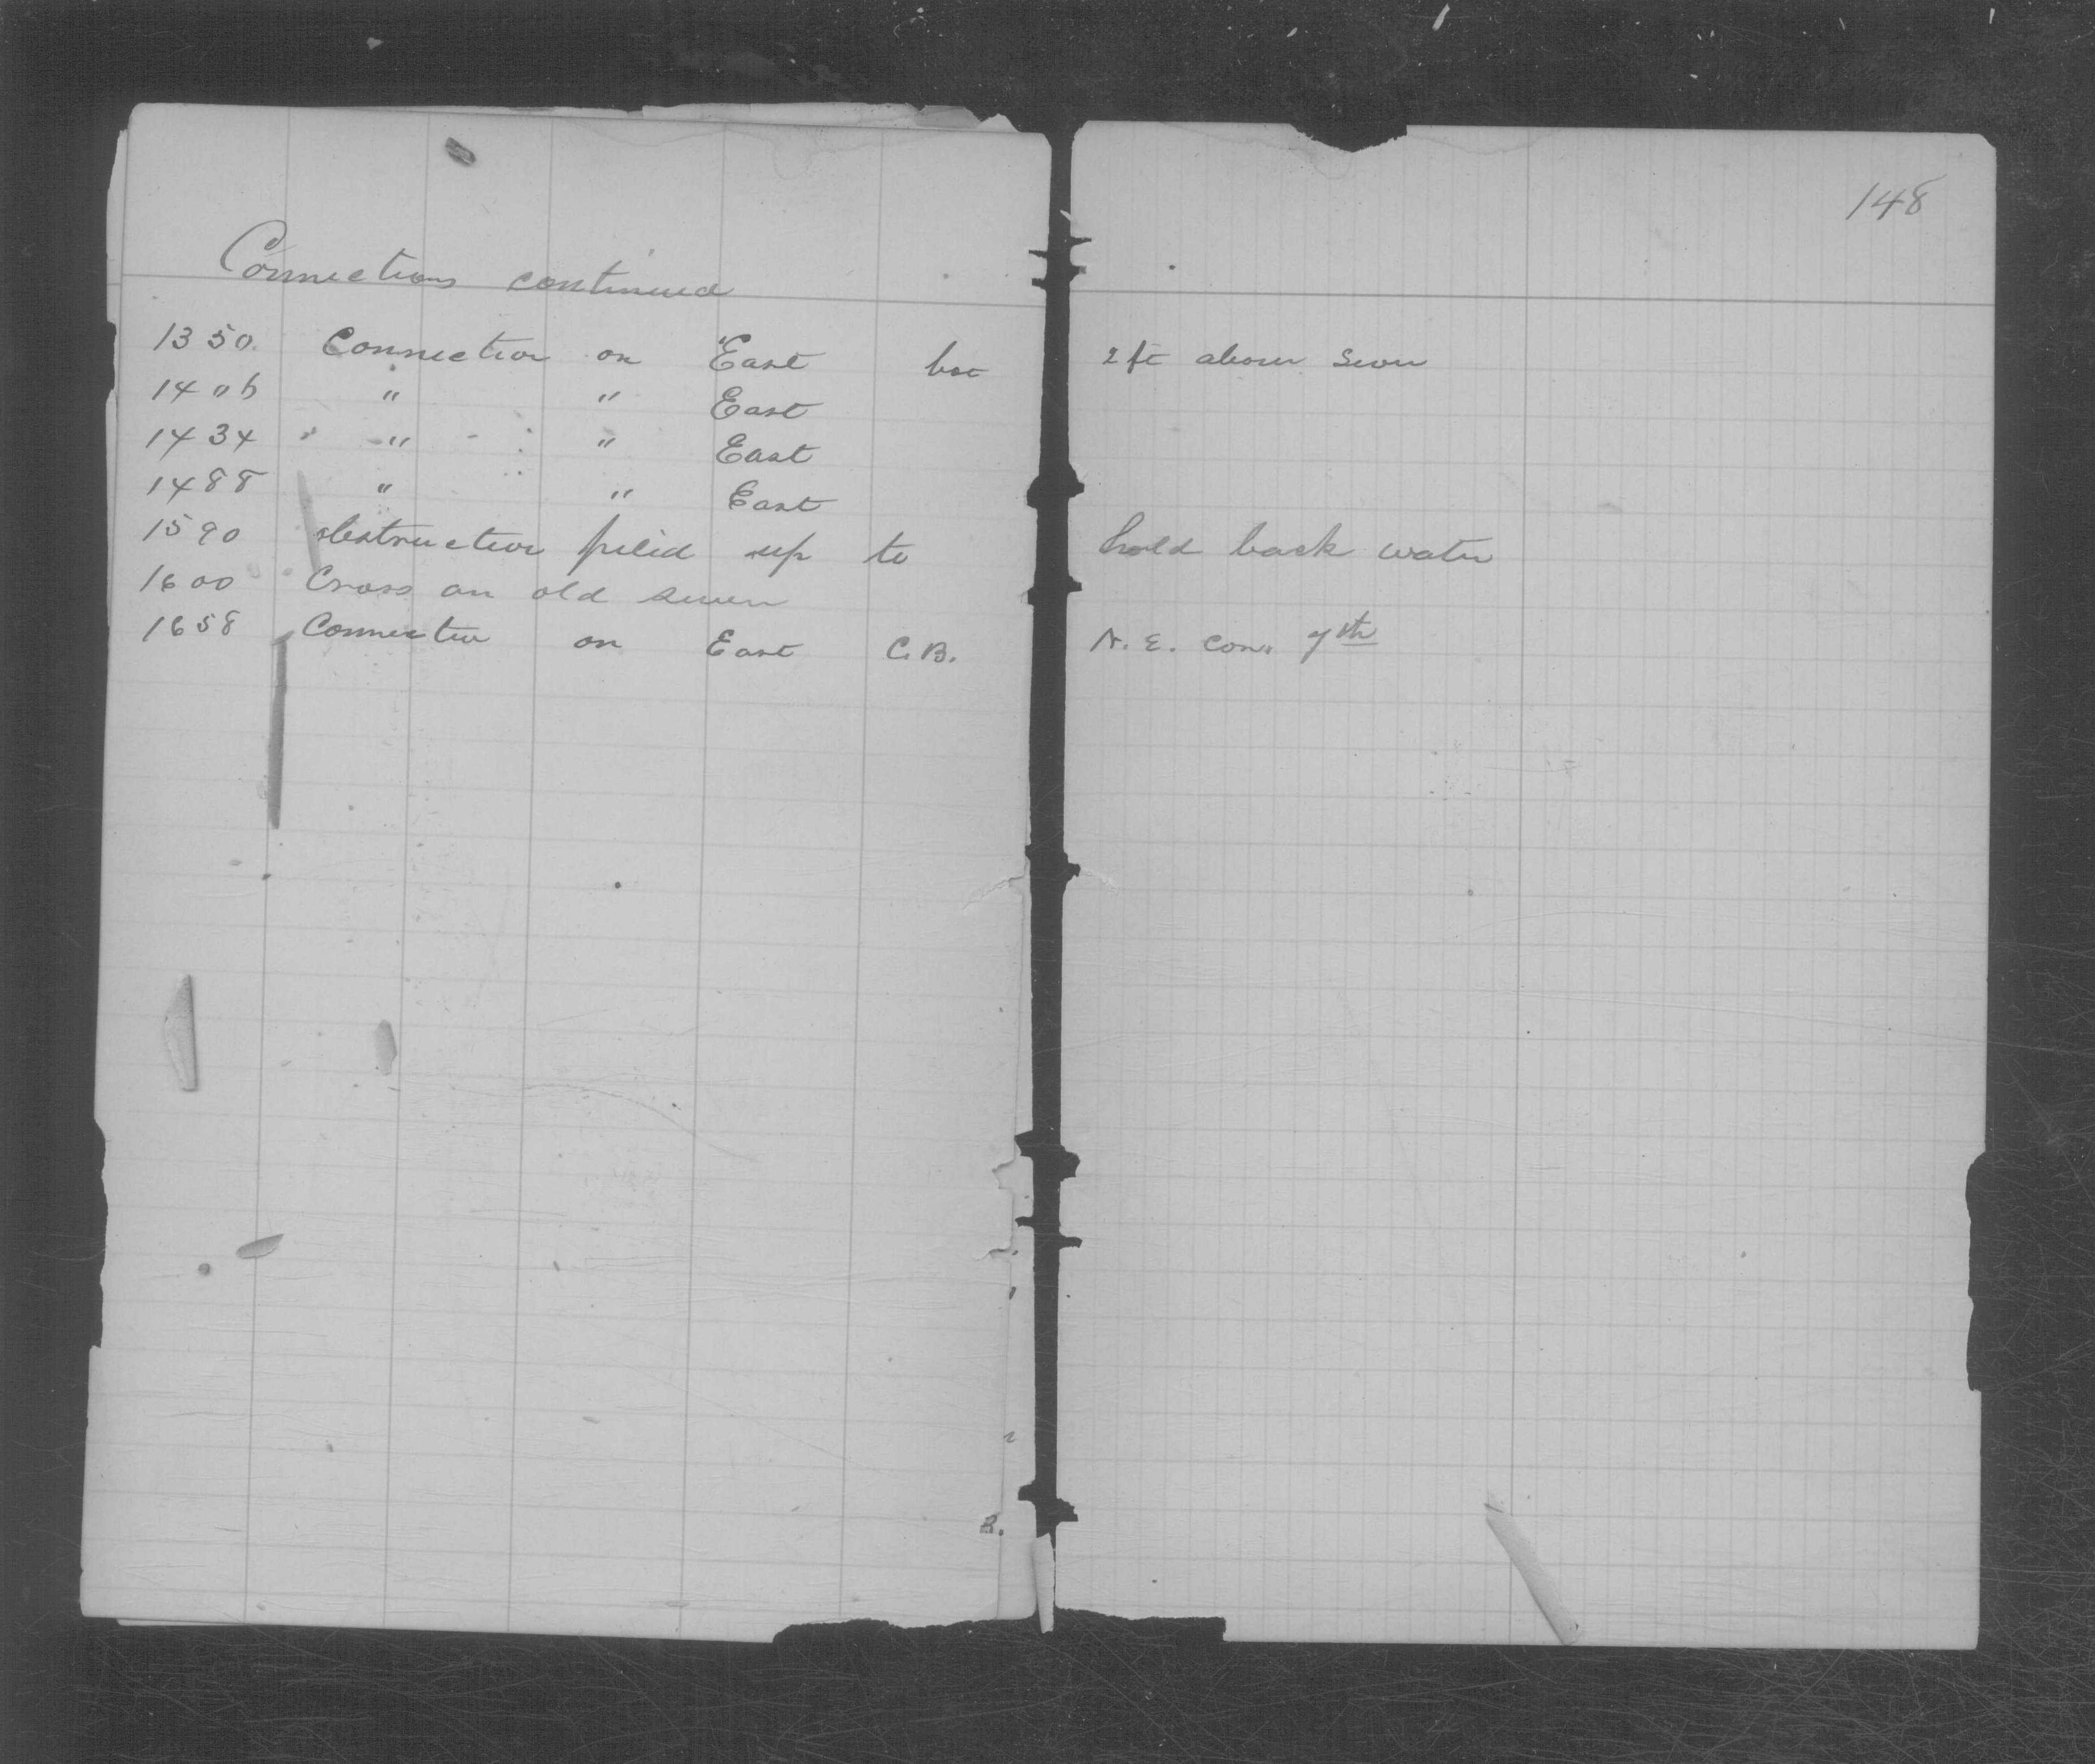 148
Connections continued
1350 Connection on East bot 2 ft above Sewer
1406 " " East
1434 " " East
1488 " " East
1590 obstruction filld up to hold back water
1600 Cross an old sewer
1658 Connection on East C.B. N.E. Cor. 7th
B.